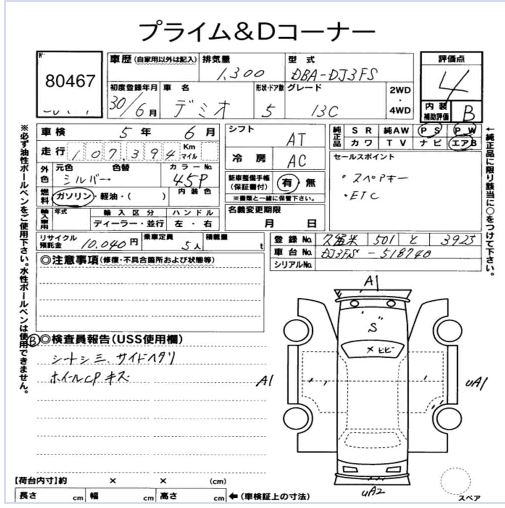 プライム＆Dコーナー
80467
車歴 (自家用以外は記入)
排気量
1,300
型式
DBA-DJ3FS
評価点
4
初度登録年月
30/6月
車名
デミオ
形状・ドア数
5
グレード
13C
2WD
・
4WD
内装
補助評価
B
車検 5年 6月
シフト
AT
純正品
SR 純AW PS PW
カワ TV ナビ エアB
走行 107,394 Km マイル
冷房
AC
セールスポイント
・スペアキー
・ETC
外色
元色
シルバー
色替
カラーNo
45P
新車整備手帳
(保証書付)
有・無
※書類と一緒に保管下さい。
燃料
ガソリン・軽油・( )
内装色
輸入車用
年式
輸入区分
ディーラー・並行
ハンドル
左・右
名義変更期限
月 日
リサイクル
預託金
10,040円
乗車定員
5人
積載量
t
登録No.
久留米 501 と 3925
車台No.
DJ3FS-518740
シリアルNo.
※必ず油性ボールペンをご使用下さい。水性ボールペンは使用できません。
←純正品に限り該当に○をつけて下さい。
◎注意事項(修復・不具合箇所および状態等)
◎検査員報告(USS使用欄)
B
シートシミ、サイドヘタリ
ホイールCP キズ
A1
S
×ヒビ
A1
uA1
uA2
スペア
【荷台内寸】約 × × (cm)
長さ cm 幅 cm 高さ cm ←(車検証上の寸法)